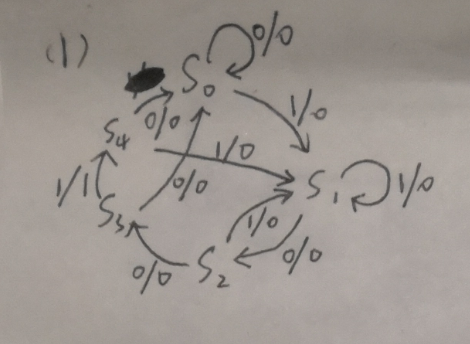 (1)
0/0
S0
1/0
S4
0/0
1/0
1/1
0/0
S1
1/0
S3
1/0
0/0
0/0
S2